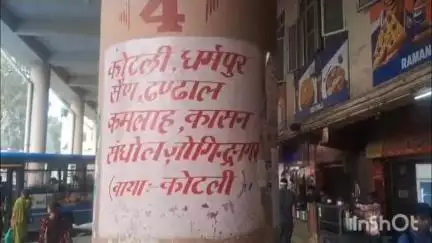 4
कोटली, धर्मपुर
सैण, ढण्ढाल
कमलाह, कासन
संधोल जोगिन्द्रनगर
(वाया:- कोटली)
RAMAN
InShOt